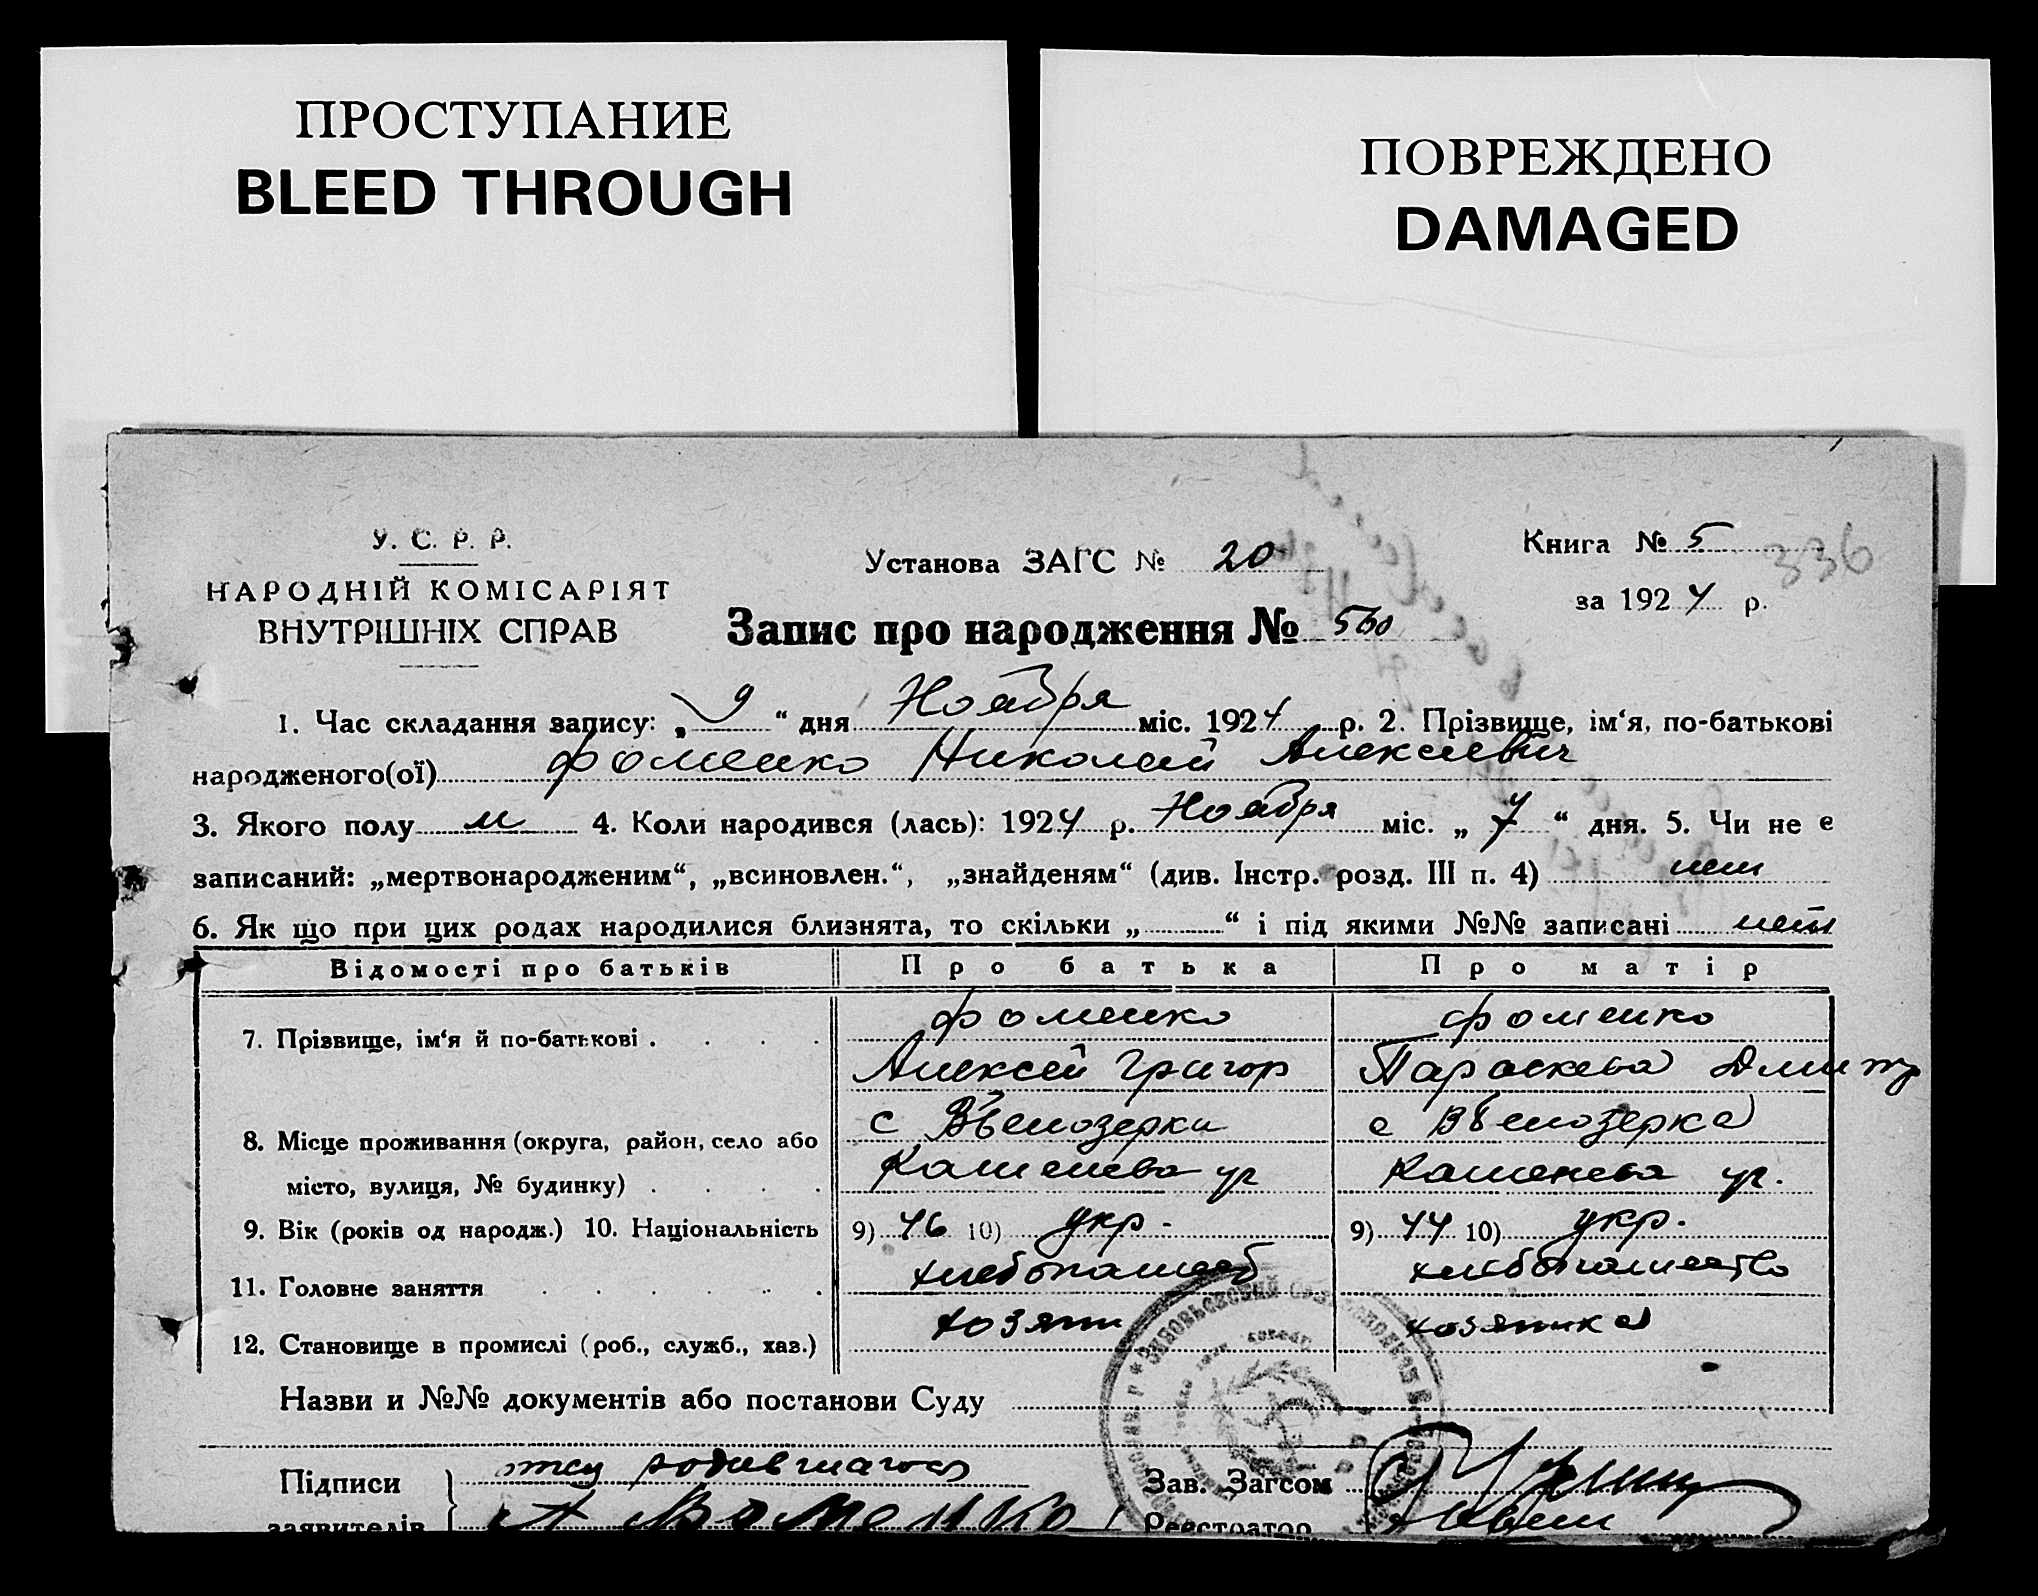 ПРОСТУПАНИЕ
BLEED THROUGH
ПОВРЕЖДЕНО
DAMAGED
У. С. Р. Р.
НАРОДНІЙ КОМІСАРІЯТ
ВНУТРІШНІХ СПРАВ
Установа ЗАГС № 20
Книга № 5
336
за 1924 р.
Запис про народження № 560
1. Час складання запису: „ 9 “ дня Ноября міс. 1924 р. 2. Прізвище, ім‘я, по-батькові
народженого(ої) Фоменко Николай Алексеевич
3. Якого полу м 4. Коли народився (лась): 1924 р. Ноября міс. „ 7 “ дня. 5. Чи не є
записаний: „мертвонародженим“, „всиновлен.“, „знайденям“ (див. Інстр. розд. III п. 4) нет
6. Як що при цих родах народилися близнята, то скільки „ “ і під якими №№ записані нет
Відомості про батьків Про батька Про матір
7. Прізвище, ім‘я й по-батькові . Фоменко Фоменко
Алексей Григор Параскева Дмитр
8. Місце проживання (округа, район, село або с Вѣелозерки с Вѣелозерка
місто, вулиця, № будинку) Каменева ул Каменева ул.
9. Вік (років од народж.) 10. Національність 9) 46 10) укр. 9) 44 10) укр.
11. Головне заняття хлебопашеств хлебопашество
12. Становище в промислі (роб., служб., хаз.) хозяин хозяйка
Назви и №№ документів або постанови Суду
Підписи отец родившагося Зав. Загсом
заявителів А Фоменко Реєстратор